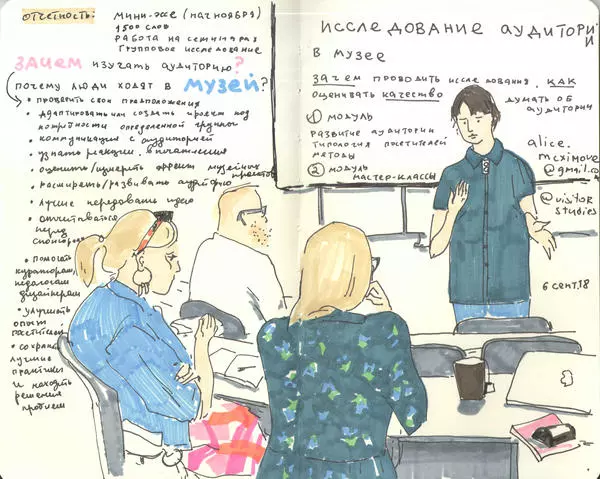 отчётность:
мини-эссе (нач ноября)
1500 слов
работа на семинарах
групповое исследование
зачем изучать аудиторию?
почему люди ходят в музей?
• проверить свои предположения
• адаптировать или создать проект под
потребности определенной группы
• коммуникация с аудиторией
• узнать реакции, впечатления
• оценить/измерить эффект музейных
проектов
• расширять/развивать аудиторию
• лучше передовать идею
• отчитываться
перед
спонсорами
• помогать
кураторам,
педагогам
дизайнерам
• улучшить
опыт
посетителей
• сохранить
лучшие
практики
и находить
решения
проблем
исследование аудитории
в музее
зачем проводить исследования, как
оценивать качество
думать об
аудитории
① модуль
развитие аудитории
типология посетителей
методы
② модуль
мастер-классы
alice.
mcximove
@gmail.co
@visitor
studies
6 сент.18